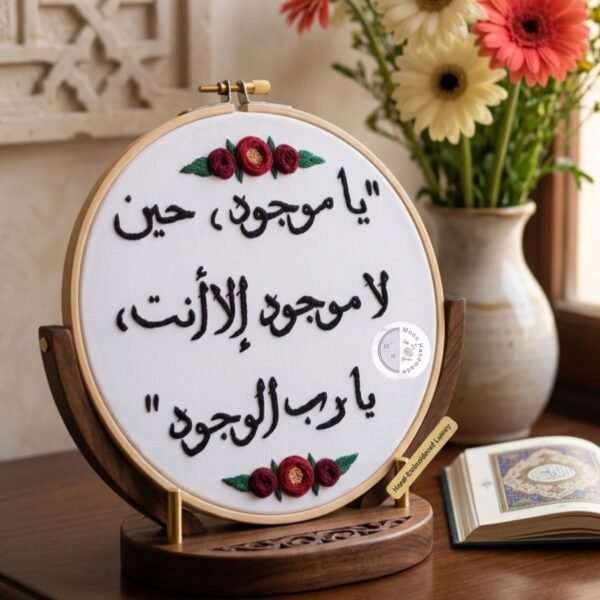 "يا موجود، حين
لا موجود إلا أنت،
يا رب الوجود"
Moon Handmade
M H
Hand-Embroidered Luxury